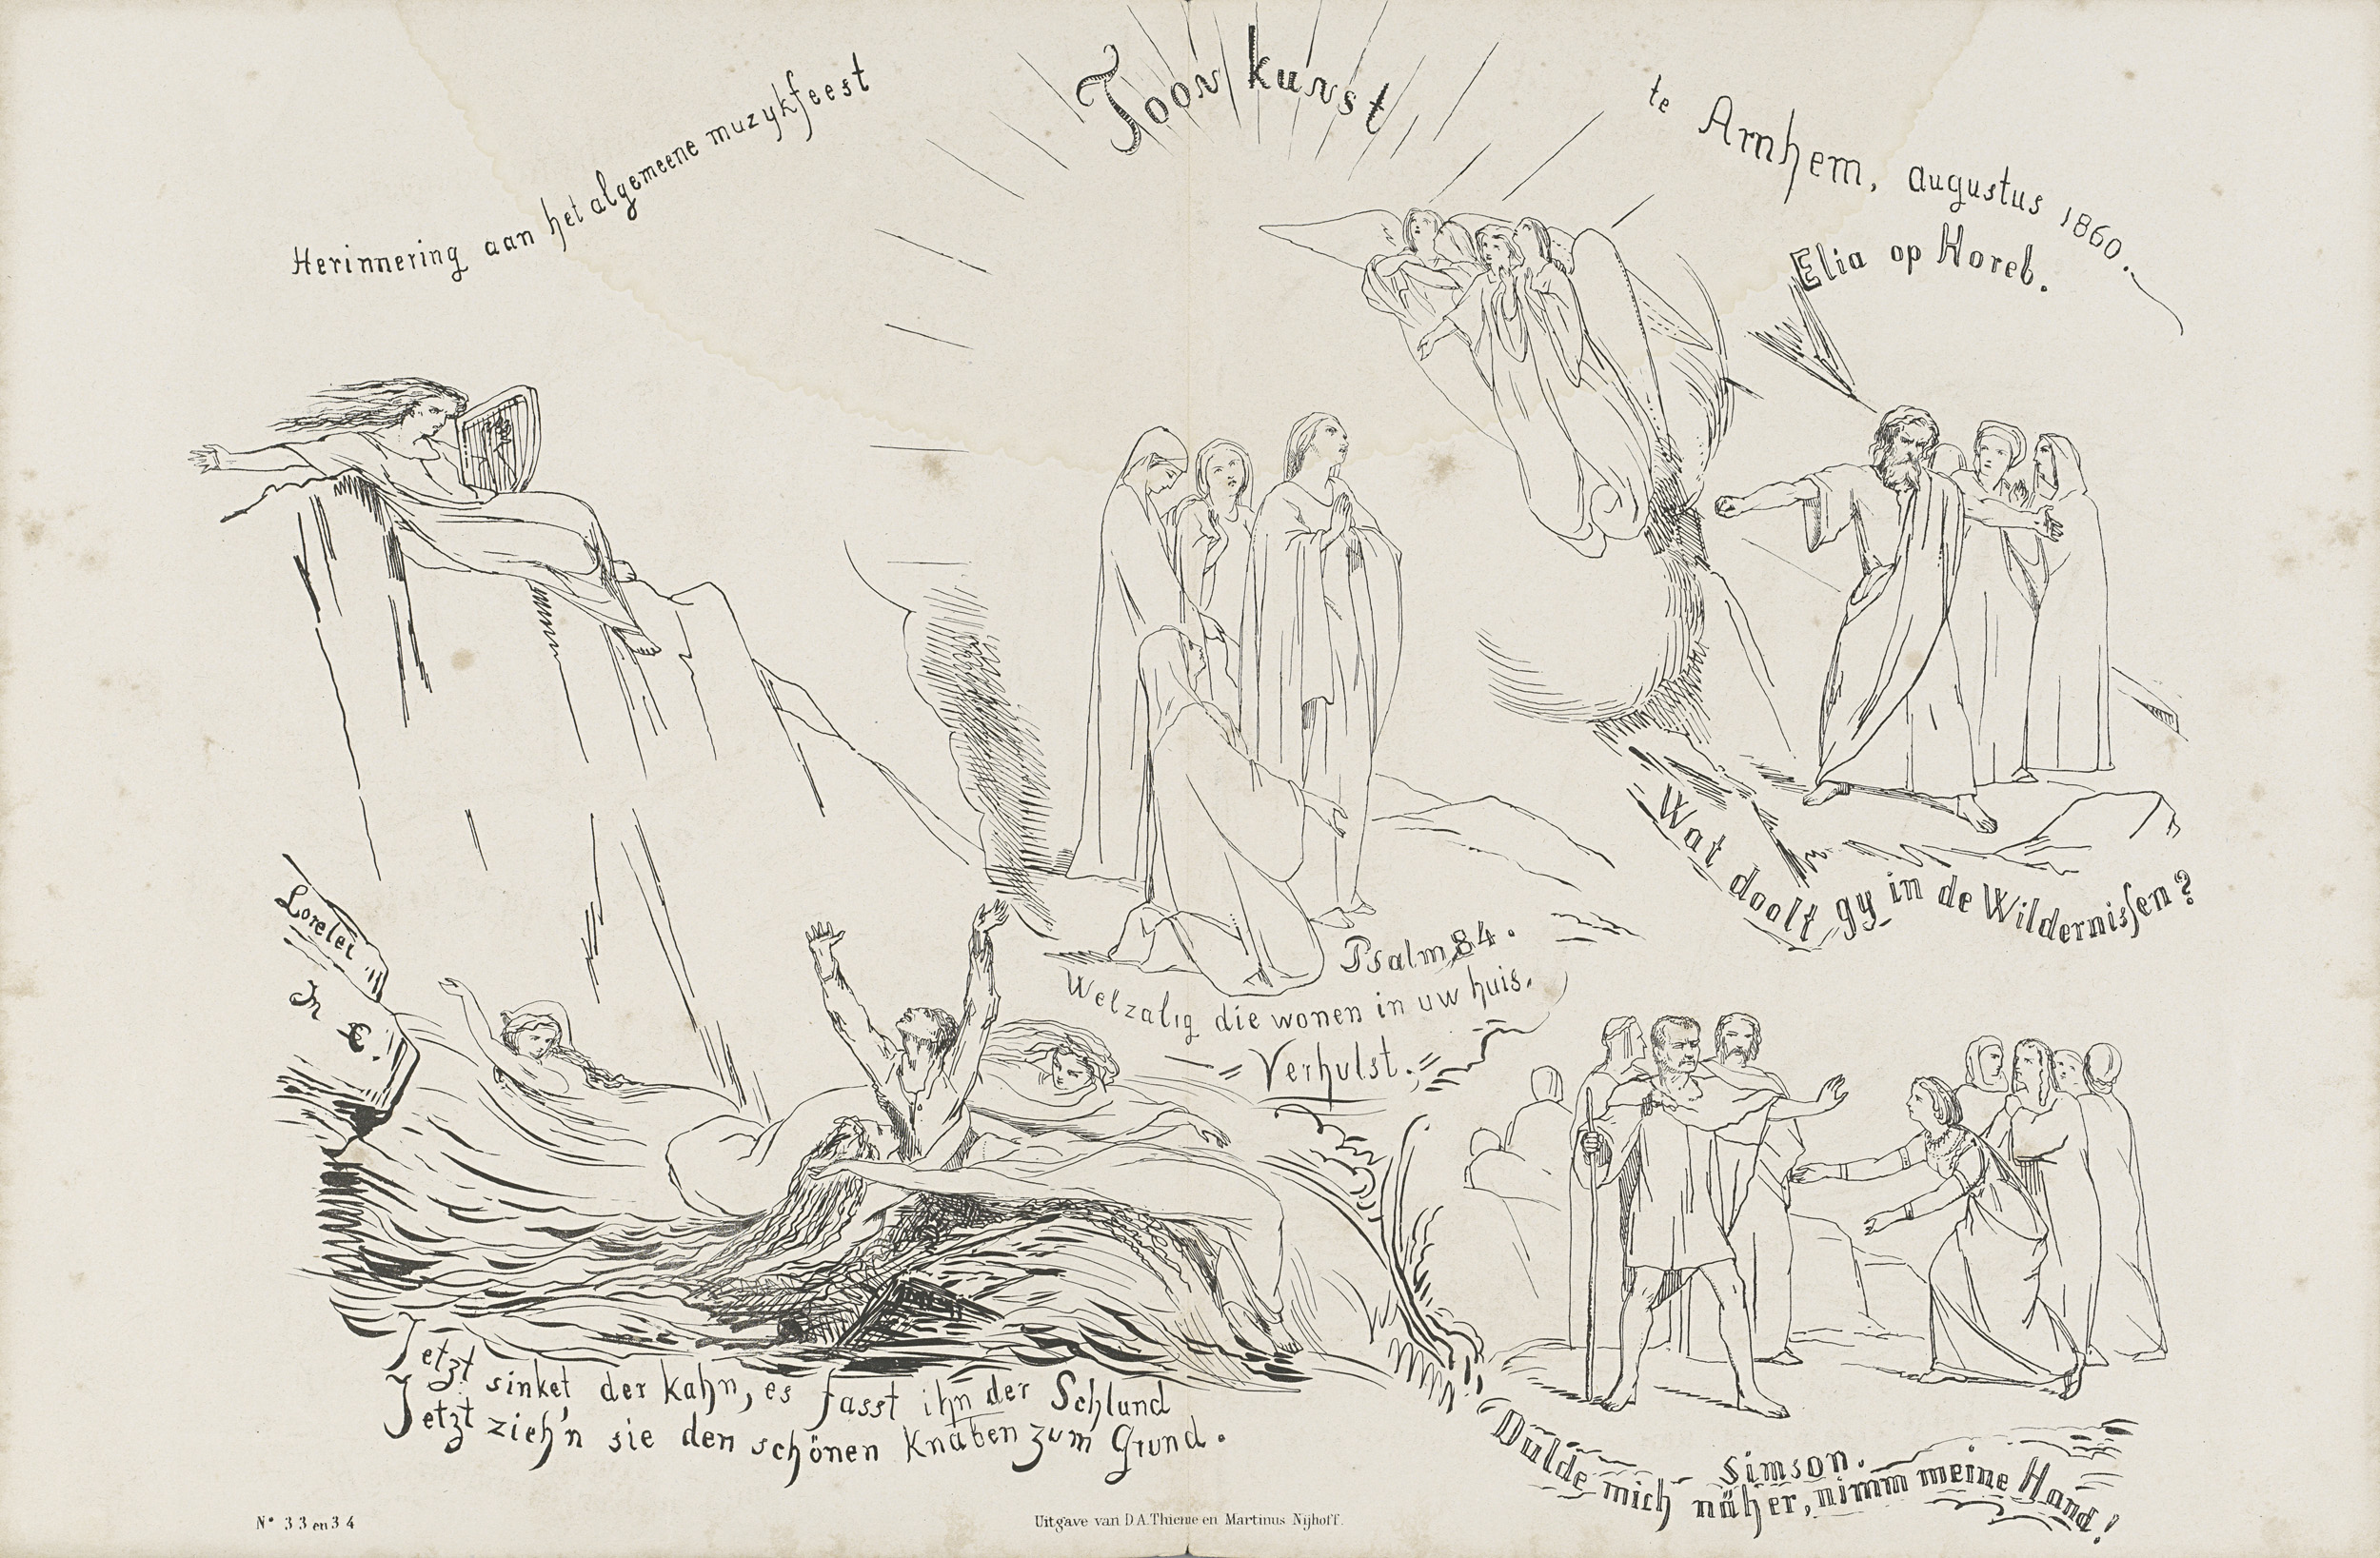 Herinnering aan het algemeene muzykfeest
Toonkunst
te Arnhem, augustus 1860.
Elia op Horeb.
Wat doolt gy in de Wildernissen?
Lorelei
Psalm 84.
Welzalig die wonen in uw huis.
Verhulst.
Jetzt sinket der Kahn, es fasst ihn der Schlund
Jetzt zieh'n sie den schönen Knaben zum Grund.
Simson.
Dulde mich näher, nimm meine Hand!
No 33 en 34
Uitgave van D.A. Thieme en Martinus Nijhoff.